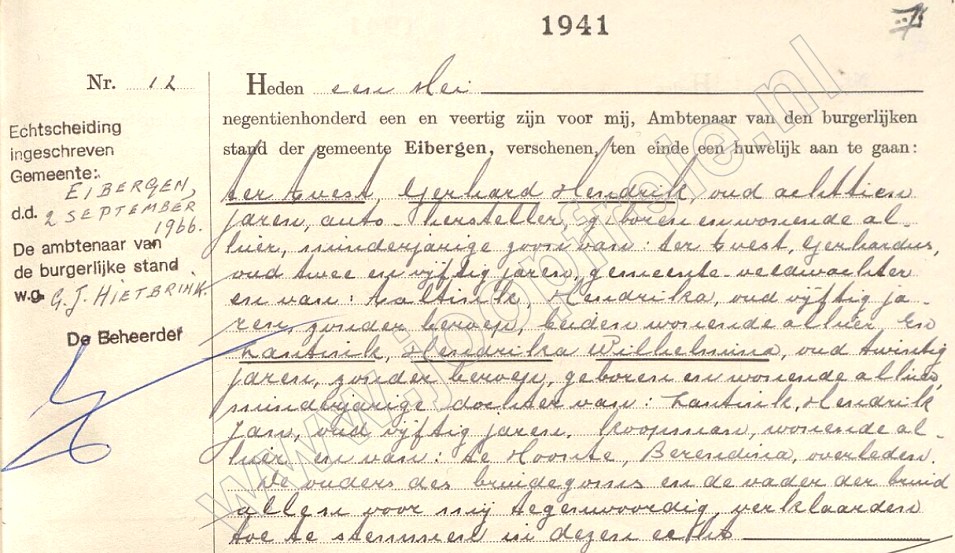 1941
7
Nr. 12
Heden een Mei
negentienhonderd een en veertig zijn voor mij, Ambtenaar van den burgerlijken
stand der gemeente Eibergen, verschenen, ten einde een huwelijk aan te gaan:
ter Evest, Gerhard Hendrik, oud achttien
jaren, auto-hersteller, geboren en wonende al-
hier, minderjarige zoon van: ter Evest, Gerhardus,
oud twee en vijftig jaren, gemeente-veldwachter
en van: Hendrika, oud vijftig ja-
ren, zonder beroep, beiden wonende alhier en
Lantink, Hendrika Wilhelmina, oud twintig
jaren, zonder beroep, geboren en wonende alhier,
minderjarige dochter van: Lantink, Hendrik
Jan, oud vijftig jaren, koopman, wonende al-
hier en van: te Hoonte, Berendina, overleden.
De ouders des bruidegoms en de vader der bruid
allen voor mij tegenwoordig, verklaarden
toe te stemmen in dezen echt
Echtscheiding
ingeschreven
Gemeente:
EIBERGEN,
d.d. 2 SEPTEMBER
1966.
De ambtenaar van
de burgerlijke stand
w.g. G.J. HIETBRINK.
De Beheerder
www.joopfrole.nl